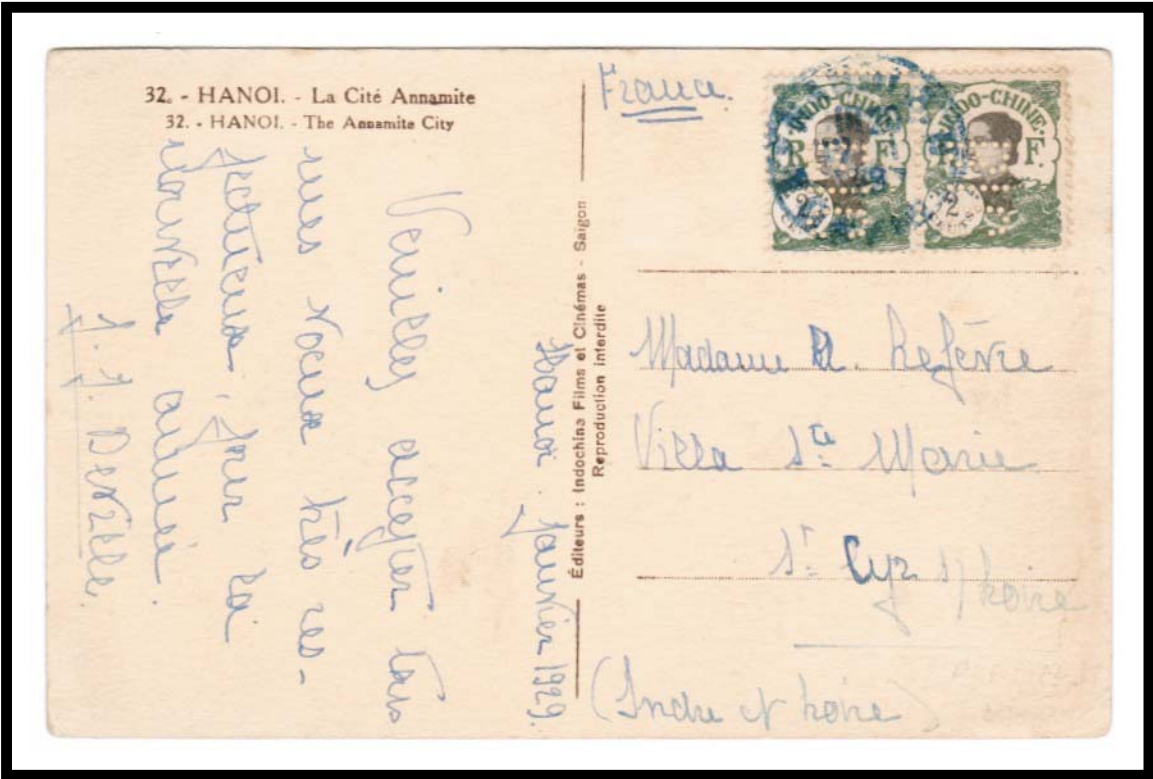 32. - HANOI. - La Cité Annamite
32. - HANOI. - The Annamite City
Hanoi Janvier 1929.
Veuillez accepter tous
mes voeux très res-
pectueux, pour la
nouvelle année.
J. J. Deville
Éditeurs : Indochina Films et Cinémas - Saigon
Reproduction interdite
France.
INDO-CHINE
R F
2
INDO-CHINE
R. F.
2 CENTS
Madame R. Lefèvre
Villa Ste Marie
St Cyr s/Loire
(Indre et Loire)